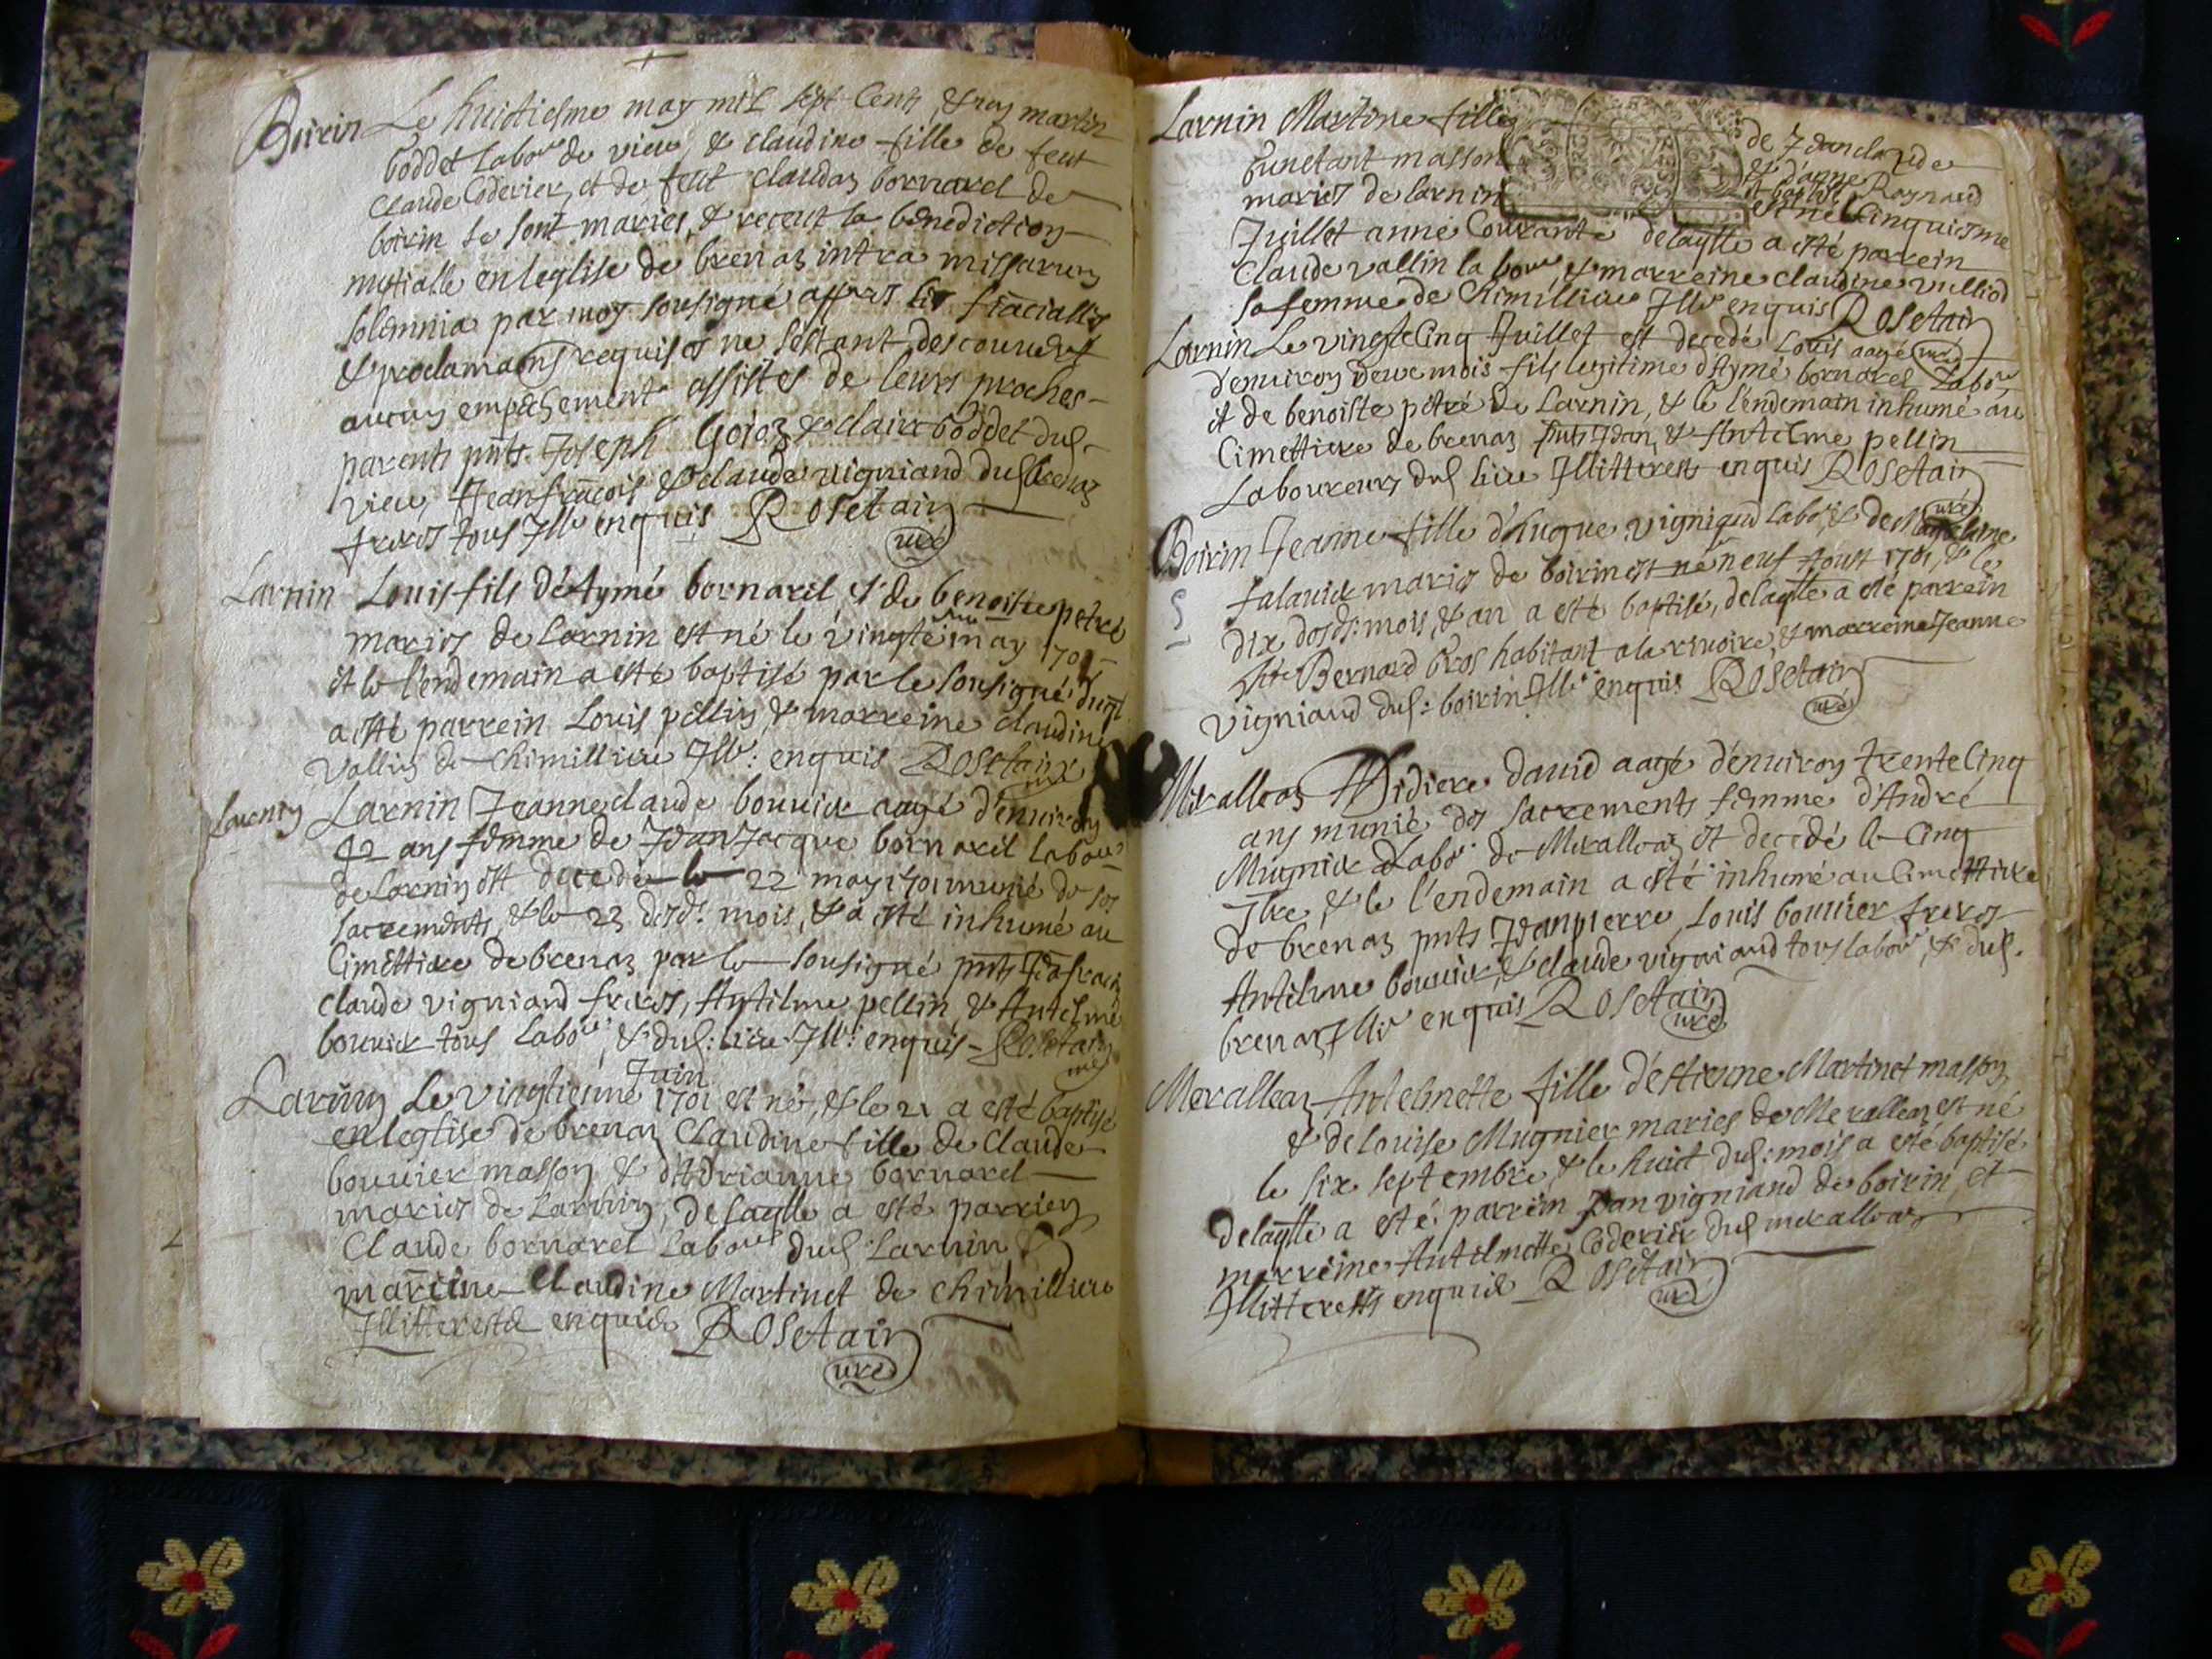 Boirin Le huictiesme may mil sept Cents, & un martin
boddet Labor de vieu, & claudine fille de feut
Claude Coderier, et de feut claudaz bornarel de
boirin se sont mariés, & receut la benediction
nuptialle en leglise de brenaz intra missarum
solemnia par moy sousigné appres les fiacialles
& proclamaons requises ne sestant descouvert
aucun empechement assistes de leurs proches
parents pnts Joseph Goioz & claire boddet dud
vieu, Jean francois & claude vigniand dud brenaz
freres tous Illr enquis Rosetain
curé
Larnin Louis fils d'Aymé bornarel & de benoiste petré
mariés de Larnin est né le vingt may 1701
et le l'endemain a esté baptisé par le sousigné, duql
a esté parrein Louis pellin, & marreine claudine
Vallin de Chimillieu Illr: enquis Rosetain
curé
Larnin Larnin Jeanneclaude bouvier aagé d'environ
42 ans femme de Jeanjacque bornarel labor
de Larnin est decedé le 22 may 1701 munié de ses
sacrements, & le 23 desd: mois, & a esté inhumé au
Cimettiere de brenaz par le sousigné pnts
claude vigniand freres, Antilme pellin, & Antelme
bouvier tous Labor, & dud: lieu Illr: enquis Rosetain
curé
Juin
Larnin Le vingtienne 1701 est né, & le 21 a esté baptisé
en leglise de brenaz Claudine fille de Claude
bouvier masson & d'Adrianne bornarel
mariés de Larnin, de laqlle a esté parrien
Claude bornarel Labor dud Larnin &
marreine Claudine Martinet de Chimillieu
Illitterests enquis Rosetain
curé
Larnin Martine fille de Jeanclaude
masson & d'anne Raynaud
mariés de larnin est né & baptisé Cinquiesme
Juillet anné Courante delaqlle a esté parrein
Claude vallin labor & marreine claudine vulliod
sa femme de Chimillieu Illr enquis Rosetain
curé
Larnin Le vingt Cinq Juillet est decedé Louis aagé
d'environ deux mois fils legitime d'Aymé bornarel Labor
et de benoiste petré de Larnin, & le l'endemain inhumé au
Cimettiere de brenaz pnts Jean, & Antelme pellin
Laboureurs dud lieu Illitterests enquis Rosetain
curé
Boirin Jeanne fille d'hugue vigniand labor, & de
falavier mariés de boirin est né neuf Aoust 1701, & le
dix desd: mois, & an a esté baptisé, delaqlle a esté parrein
Bernard Gros habitant a la rivoire, & marreine Jeanne
vigniand dud: boirin Illr enquis Rosetain
curé
Meralleaz Didiere david aagé d'environ trente Cinq
ans munié des sacrements femme d'André
Mugnier Labor de Meralleaz est decedé le Cinq
7bre, & le l'endemain a esté inhumé au Cimettiere
de brenaz pnts Jeanpierre, Louis bouvier freres
Antelme bouvier, & claude vigniand tous labor, & dud.
brenaz Illr enquis Rosetain
curé
Meralleaz Antelmette fille d'Estienne Martinet masson
& de louise Mugnier mariés de Meralleaz est né
le six septembre, & le huict dud: mois a esté baptisé
delaqlle a esté parrein Jean vigniand de boirin, et
marreine Antelmette Coderier dud meralleaz
Illitterests enquis Rosetain
curé